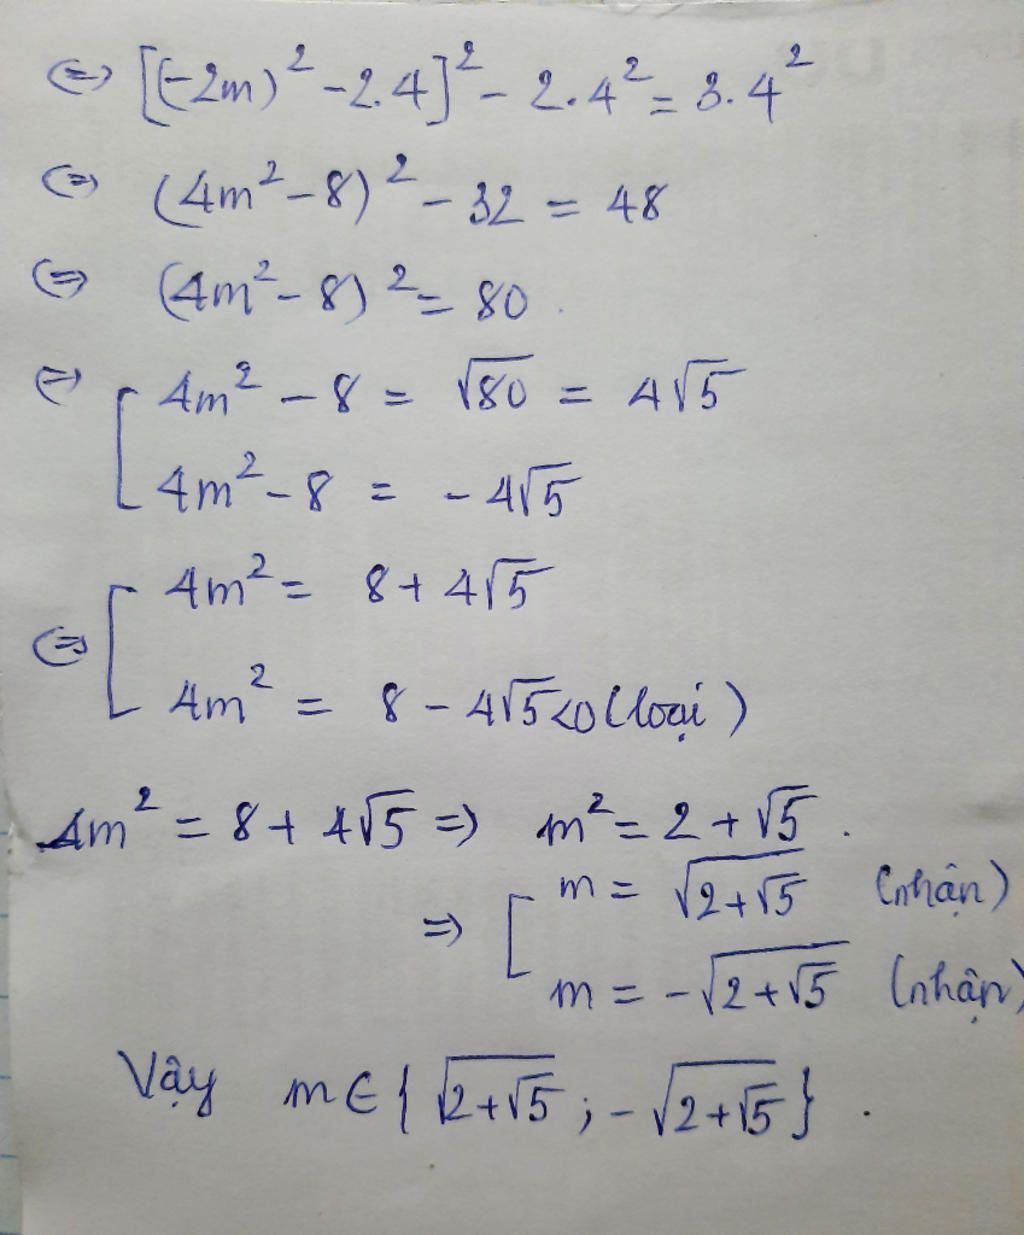 (=) [(-2m)² - 2.4]² - 2.4² = 3.4²
(=) (4m² - 8)² - 32 = 48
(=) (4m² - 8)² = 80
(=) [ 4m² - 8 = √80 = 4√5
4m² - 8 = -4√5
(=) [ 4m² = 8 + 4√5
4m² = 8 - 4√5 <0 (loại)
4m² = 8 + 4√5 => m² = 2 + √5.
=> [ m = √(2+√5) (nhận)
m = -√(2+√5) (nhận)
Vậy m ∈ { √(2+√5) ; -√(2+√5) } .